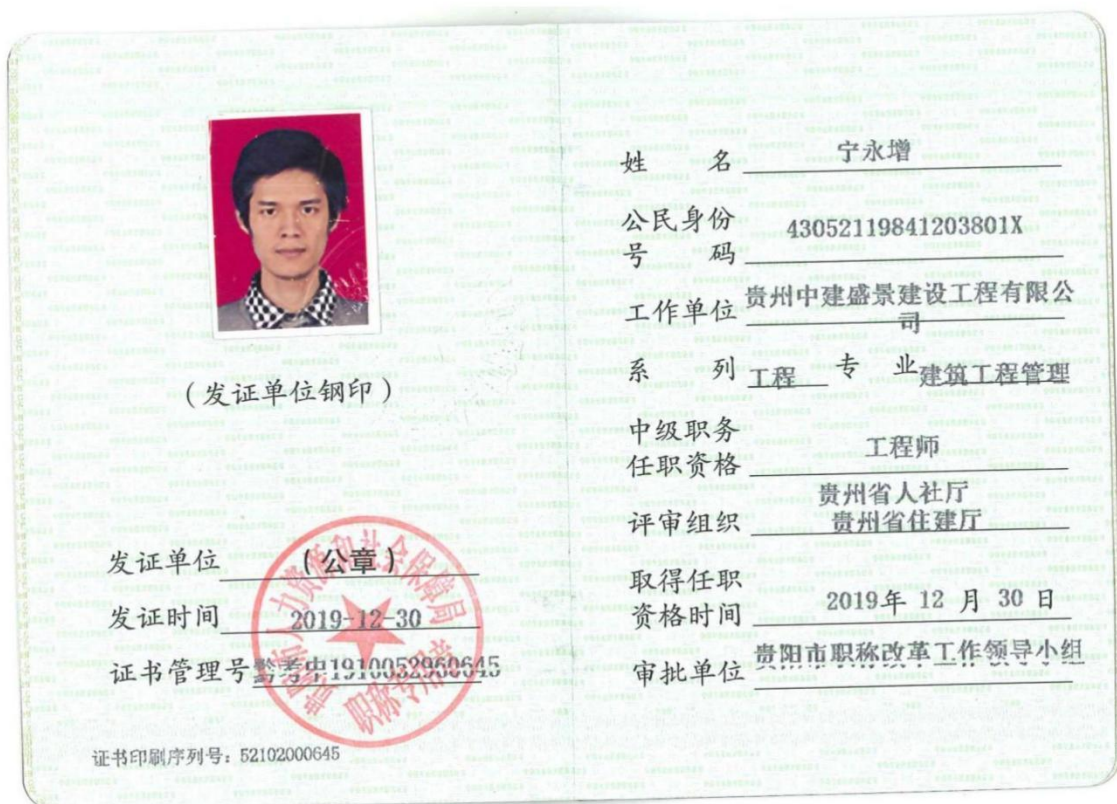 (发证单位钢印)
发证单位 (公章)
发证时间 2019-12-30
证书管理号 黔考中1910052960645
证书印刷序列号：52102000645
姓 名 宁永增
公民身份
号 码 43052119841203801X
工作单位 贵州中建盛景建设工程有限公
司
系 列 工程 专 业 建筑工程管理
中级职务
任职资格 工程师
贵州省人社厅
评审组织 贵州省住建厅
取得任职
资格时间 2019年 12 月 30 日
审批单位 贵阳市职称改革工作领导小组